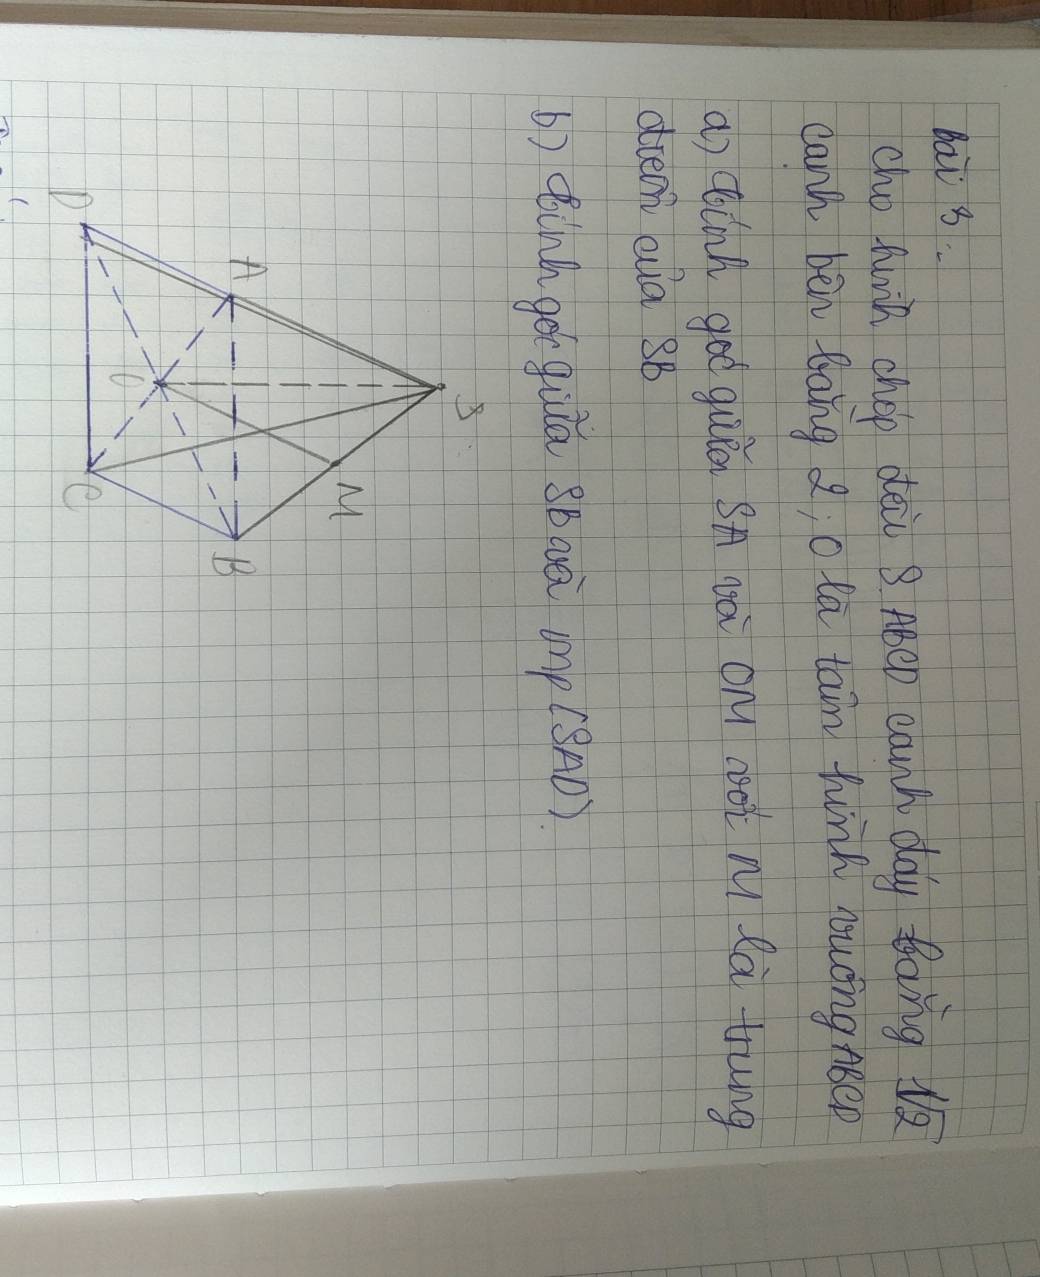 bài 3:
cho hình chóp đều S.ABCD cạnh đáy bằng √2
cạnh bên bằng 2; O là tâm hình vuông ABCD
a) tính góc giữa SA và OM với M là trung
điểm của SB
b) tính góc giữa SB và mp (SAD).
S
M
A
B
O
D
C